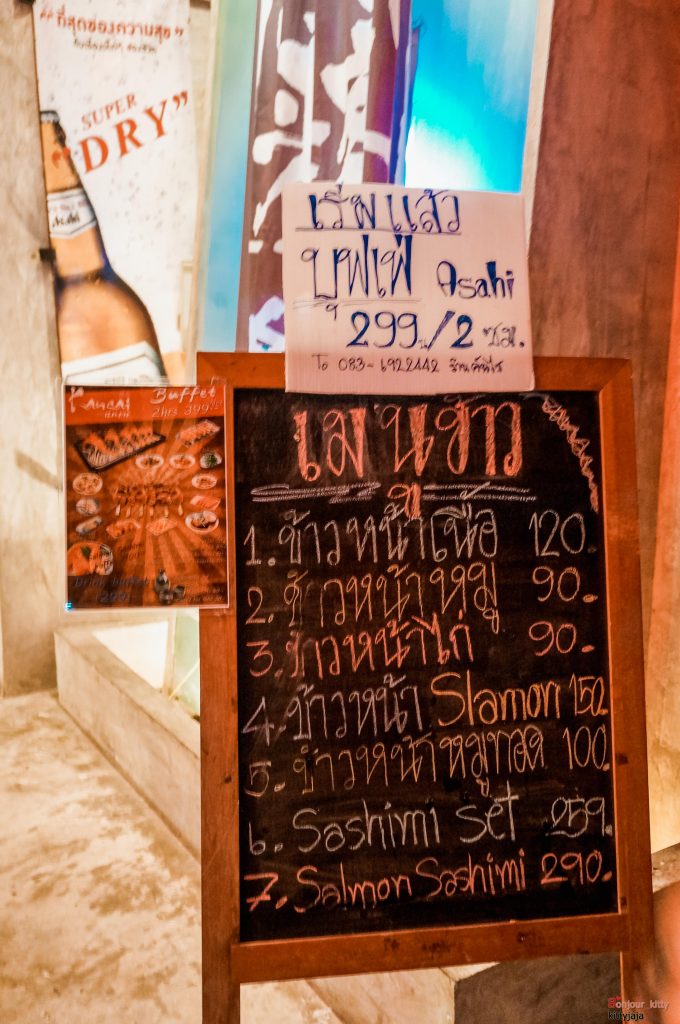 “ที่สุดของความสุข”
SUPER
“DRY”
Asahi
เริ่มแล้ว
บุฟเฟ่ Asahi
299./2 ชม.
โท 083-6922442
Buffet
2hrs 399
เมนูข้าว
1. ข้าวหน้าเนื้อ 120.
2. ข้าวหน้าหมู 90.
3. ข้าวหน้าไก่ 90.
4. ข้าวหน้า Slamon 150.
5. ข้าวหน้าหมูทอด 100.
6. Sashimi set 259.
7. Salmon Sashimi 290.
Bonjour_kitty
kittyjaja